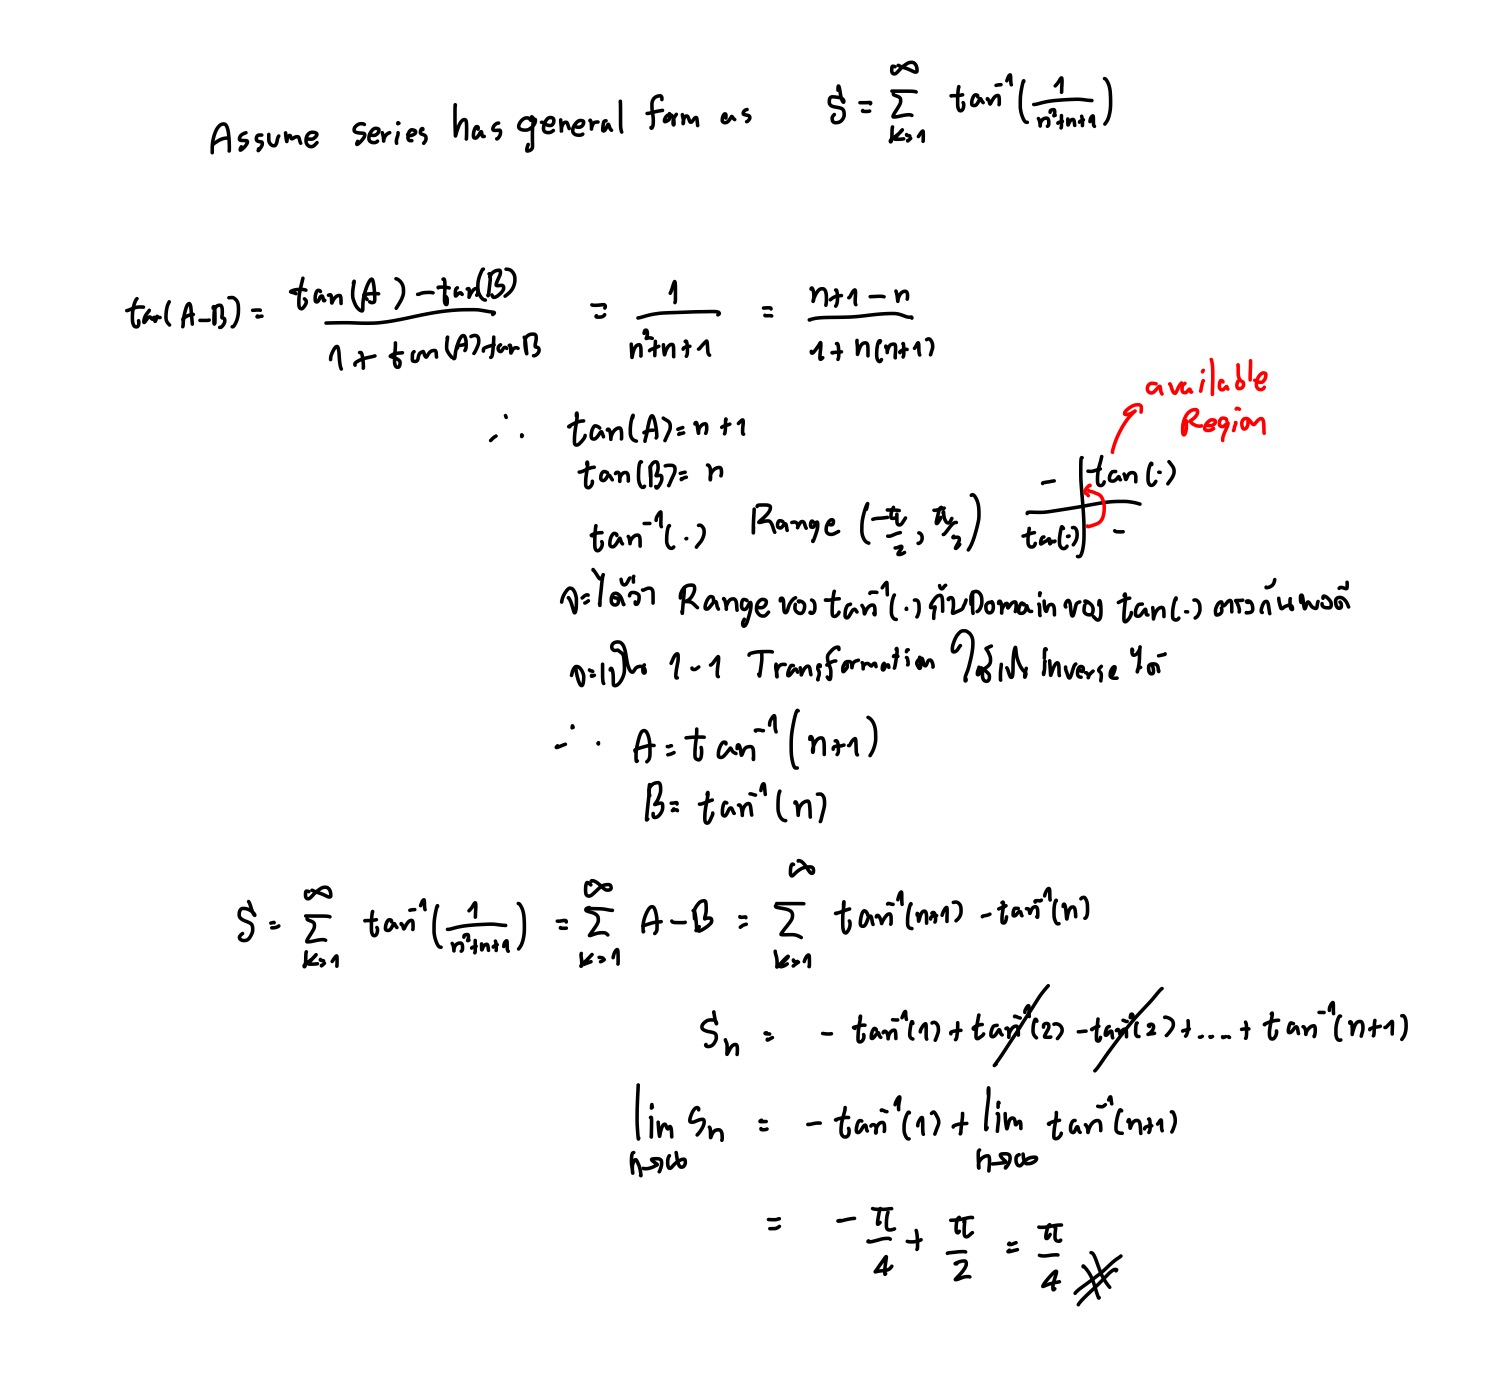 Assume series has general form as S = ∞ Σ k=1 tan⁻¹(1/(n²+n+1))
tan(A-B) = (tan(A) - tan(B))/(1 + tan(A) tan B) = 1/(n²+n+1) = (n+1-n)/(1+n(n+1))
available
Region
∴ tan(A) = n+1
tan(B) = n
- tan(·)
tan⁻¹(·) Range (-π/2, π/2)
tan(·) -
จะได้ว่า Range ของ tan⁻¹(·) กับ Domain ของ tan(·) ตรงกันพอดี
จะเป็น 1-1 Transformation Inverse ได้
∴ A = tan⁻¹(n+1)
B = tan⁻¹(n)
S = ∞ Σ k=1 tan⁻¹(1/(n²+n+1)) = ∞ Σ k=1 A-B = ∞ Σ k=1 tan⁻¹(n+1) - tan⁻¹(n)
Sn = - tan⁻¹(1) + tan⁻¹(2) - tan⁻¹(2) + .... + tan⁻¹(n+1)
lim n→∞ Sn = - tan⁻¹(1) + lim n→∞ tan⁻¹(n+1)
= - π/4 + π/2 = π/4